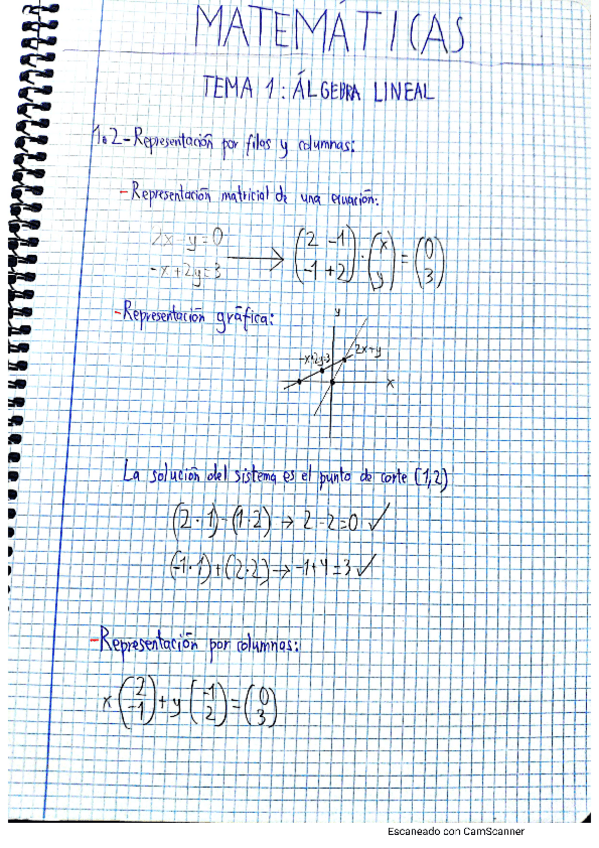 MATEMÁTICAS
TEMA 1: ÁLGEBRA LINEAL
1.2-Representación por filas y columnas:
-Representación matricial de una ecuación:
2x-y=0
-x+2y=3
→ (2 -1
-1 +2) · (x
y) = (0
3)
-Representación gráfica:
y
-x+2y=3
2x+y
x
La solución del sistema es el punto de corte (1,2)
(2·1)-(1·2) → 2-2=0 ✓
(-1·1)+(2·2) → -1+4=3 ✓
-Representación por columnas:
x (2
-1) + y (-1
2) = (0
3)
Escaneado con CamScanner